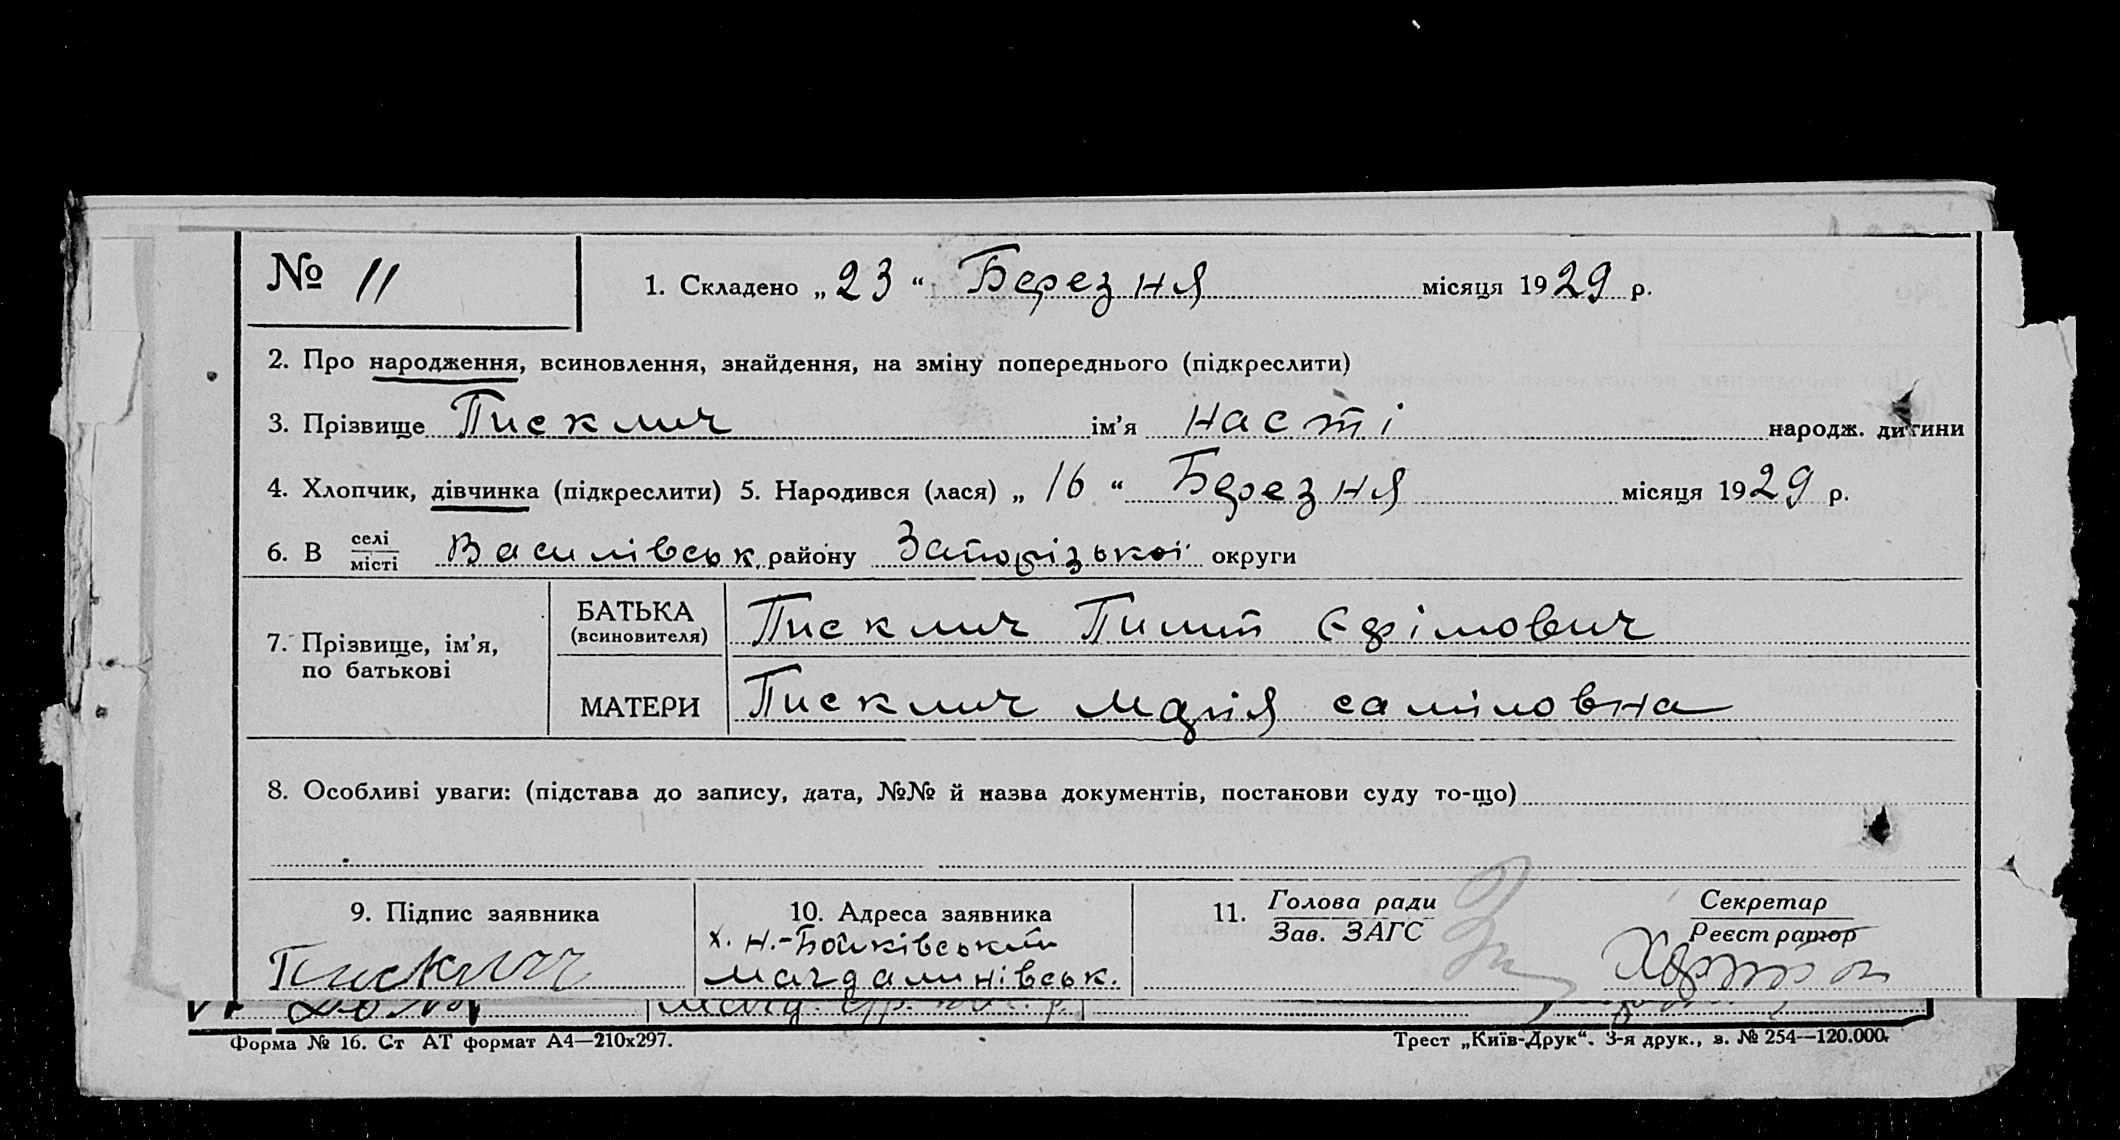 № 11
1. Складено „23“ Березня місяця 1929 р.
2. Про народження, всиновлення, знайдення, на зміну попереднього (підкреслити)
3. Прізвище Písклич ім’я Насті народж. дитини
4. Хлопчик, дівчинка (підкреслити) 5. Народився (лася) „16“ Березня місяця 1929 р.
6. В селі/місті Василівськ. району Запорізької округи
7. Прізвище, ім’я, по батькові
БАТЬКА (всиновителя) Писклич Пилип Єфімович
МАТЕРИ Писклич Марія
8. Особливі уваги: (підстава до запису, дата, №№ й назва документів, постанови суду то-що)
9. Підпис заявника
Писклич
10. Адреса заявника
х. Н.-Бойківський
Магдалинівськ.
11. Голова ради
Зав. ЗАГС
Секретар
Реєстратор
Форма № 16. Ст АТ формат А4—210х297.
Трест „Київ-Друк“. 3-я друк., з. № 254—120.000.